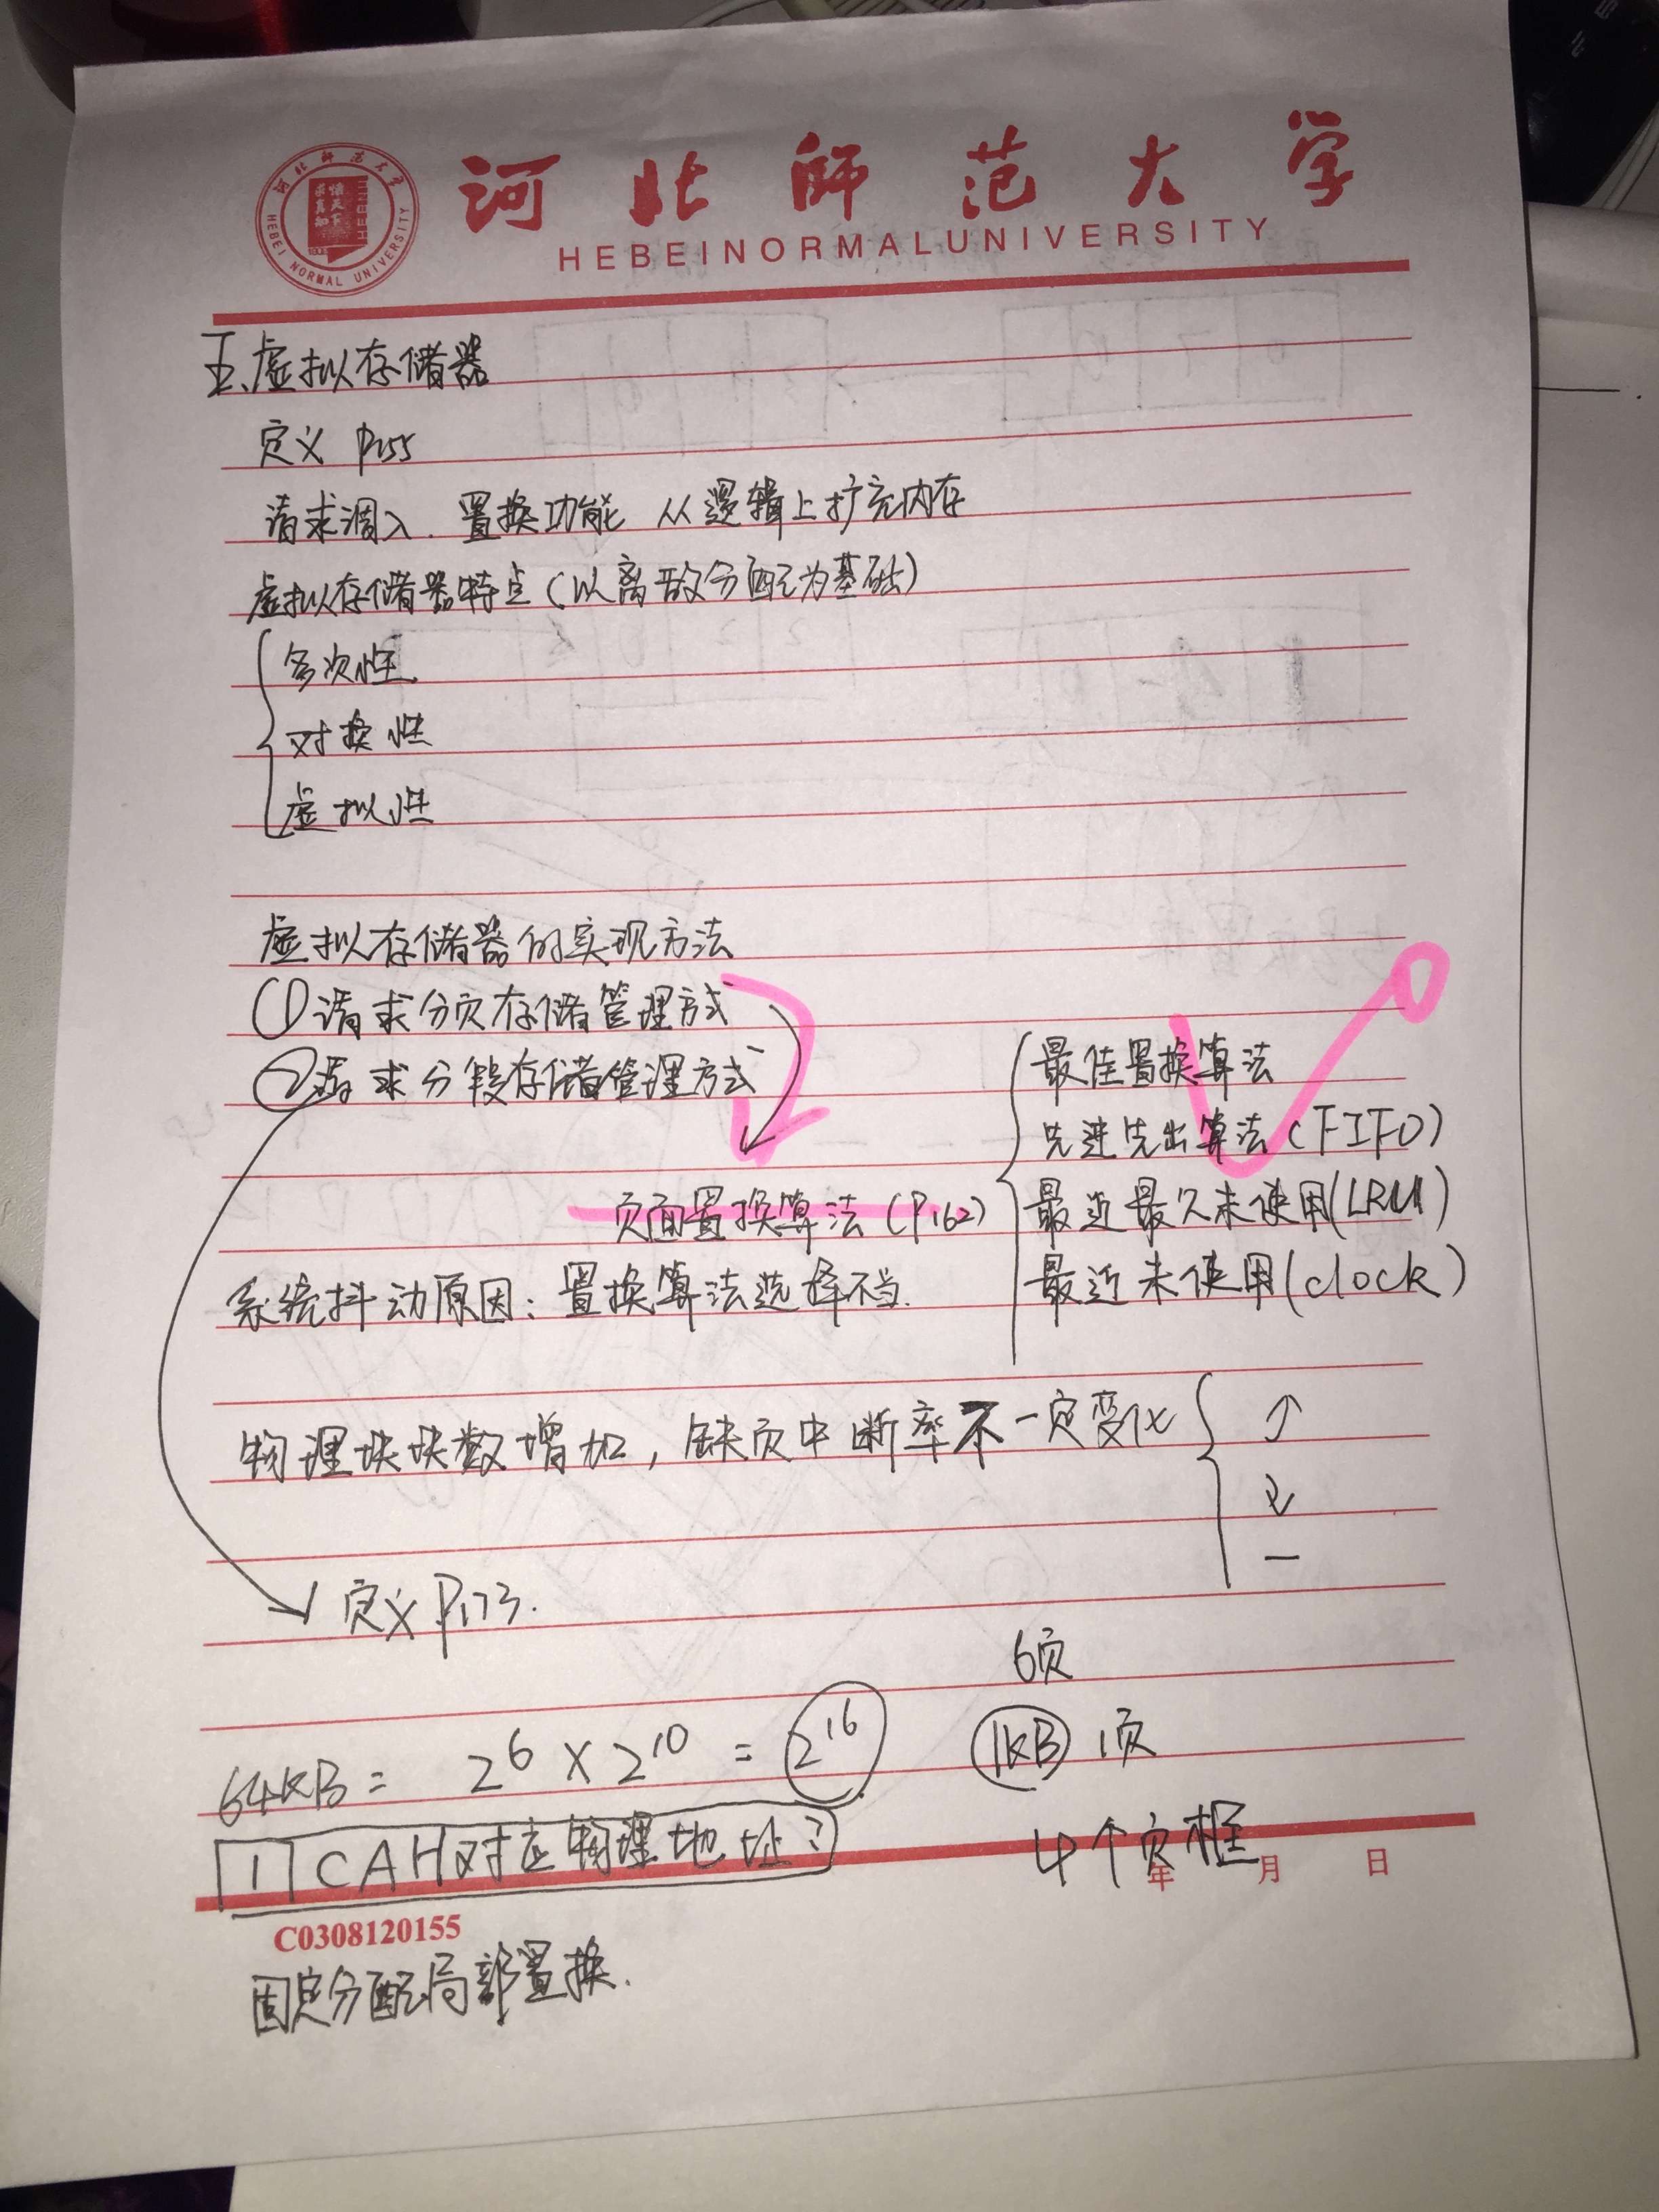 河北师范大学
HEBEI NORMAL UNIVERSITY
HEBEINORMALUNIVERSITY
五、虚拟存储器
定义 P155
请求调入、置换功能 从逻辑上扩充内存
虚拟存储器特点(以离散分配为基础)
多次性
对换性
虚拟性
虚拟存储器的实现方法
①请求分页存储管理方式
②请求分段存储管理方式
页面置换算法(P162)
最佳置换算法
先进先出算法(FIFO)
最近最久未使用(LRU)
最近未使用(clock)
系统抖动原因:置换算法选择不当.
物理块块数增加,缺页中断率不一定变化
↑
↓
—
定义P173.
6页
64KB = 2^6 × 2^10 = 2^16
1KB 1页
1CAH对应物理地址?
4个页框
年 月 日
C0308120155
固定分配局部置换.